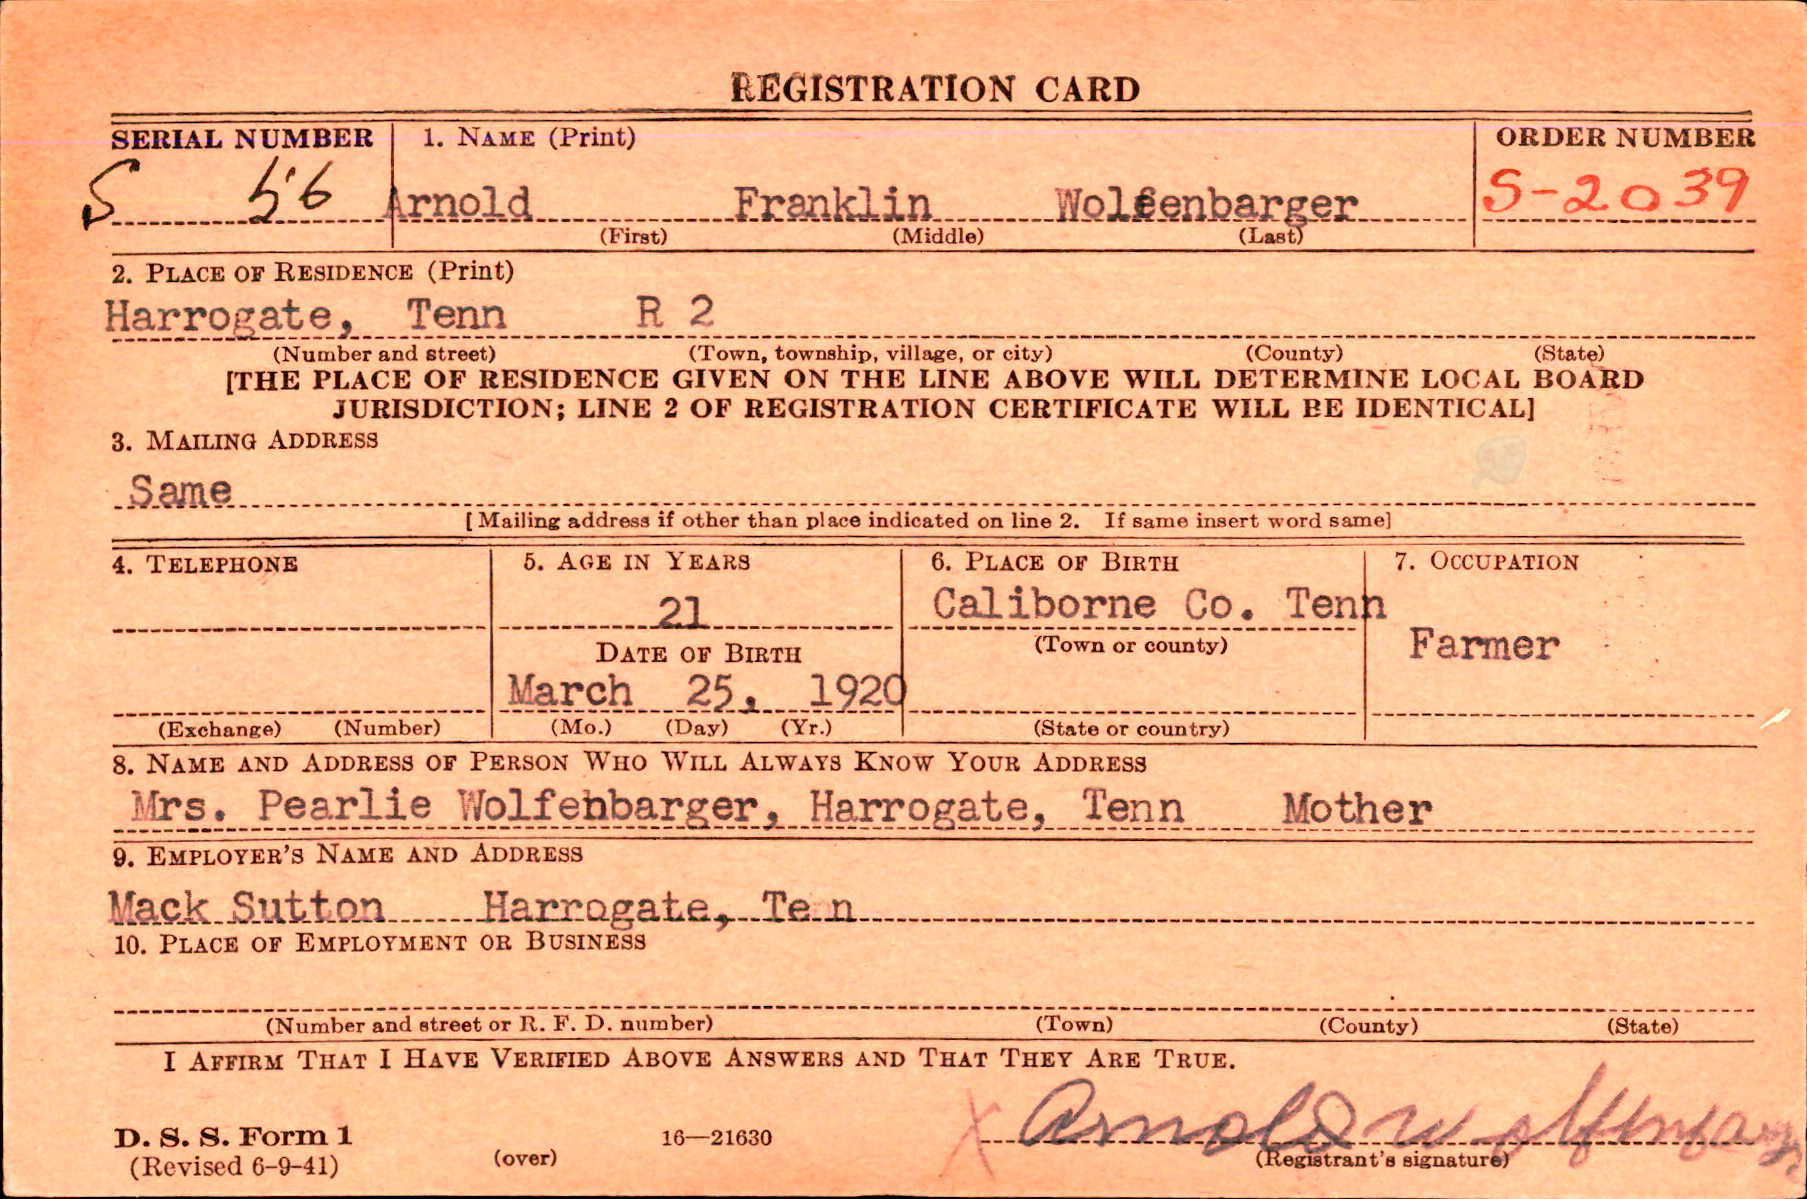 REGISTRATION CARD
SERIAL NUMBER 1. NAME (Print) ORDER NUMBER
S 56 Arnold Franklin Wolfenbarger S-2039
(First) (Middle) (Last)
2. PLACE OF RESIDENCE (Print)
Harrogate, Tenn R 2
(Number and street) (Town, township, village, or city) (County) (State)
[THE PLACE OF RESIDENCE GIVEN ON THE LINE ABOVE WILL DETERMINE LOCAL BOARD
JURISDICTION; LINE 2 OF REGISTRATION CERTIFICATE WILL BE IDENTICAL]
3. MAILING ADDRESS
Same
[Mailing address if other than place indicated on line 2. If same insert word same]
4. TELEPHONE 5. AGE IN YEARS 6. PLACE OF BIRTH 7. OCCUPATION
21 Caliborne Co. Tenn
DATE OF BIRTH (Town or county) Farmer
March 25, 1920
(Exchange) (Number) (Mo.) (Day) (Yr.) (State or country)
8. NAME AND ADDRESS OF PERSON WHO WILL ALWAYS KNOW YOUR ADDRESS
Mrs. Pearlie Wolfenbarger, Harrogate, Tenn Mother
9. EMPLOYER'S NAME AND ADDRESS
Mack Sutton Harrogate, Te n
10. PLACE OF EMPLOYMENT OR BUSINESS
(Number and street or R. F. D. number) (Town) (County) (State)
I AFFIRM THAT I HAVE VERIFIED ABOVE ANSWERS AND THAT THEY ARE TRUE.
D. S. S. Form 1 16—21630 X Arnold
(Revised 6-9-41) (over) (Registrant's signature)